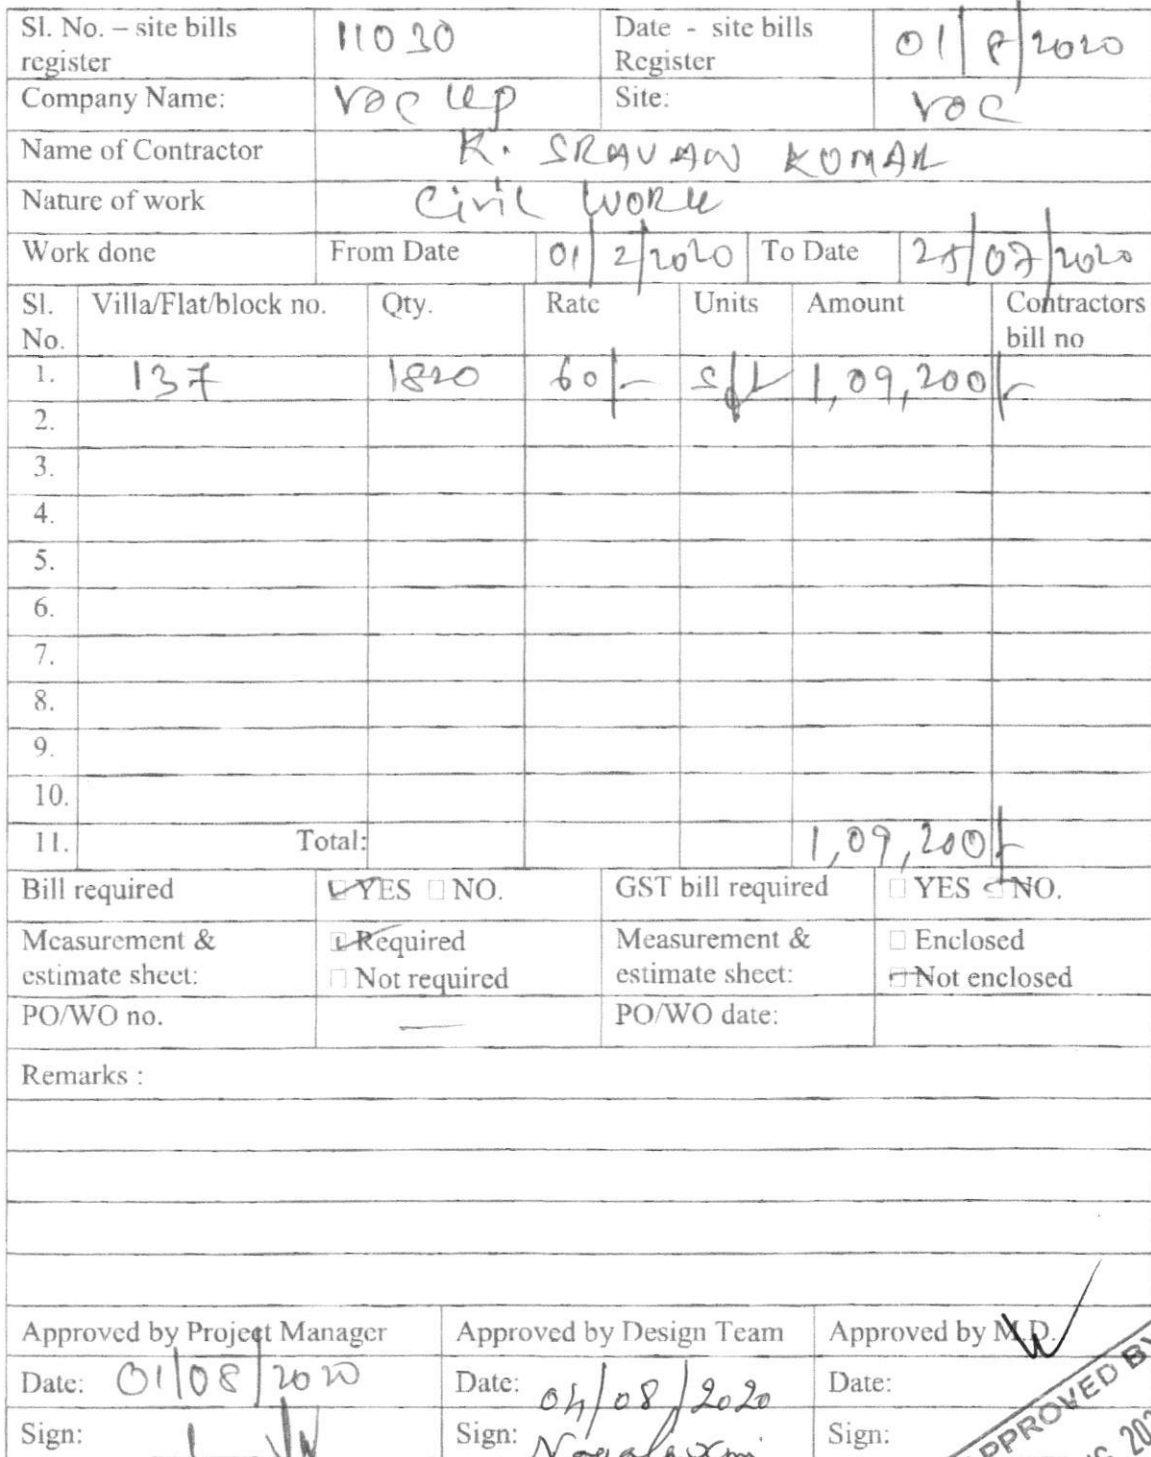 Sl. No. – site bills register 11030 Date - site bills Register 01/8/2020
Company Name: VOC LLP Site: VOC
Name of Contractor K. SRAVAN KUMAR
Nature of work Civil WORK
Work done From Date 01/2/2020 To Date 25/07/2020
Sl. No. Villa/Flat/block no. Qty. Rate Units Amount Contractors bill no
1. 137 1820 60/- sft 1,09,200/-
2.
3.
4.
5.
6.
7.
8.
9.
10.
11. Total: 1,09,200/-
Bill required YES NO. GST bill required YES NO.
Measurement & estimate sheet: Required Not required Measurement & estimate sheet: Enclosed Not enclosed
PO/WO no. — PO/WO date:
Remarks :
Approved by Project Manager Approved by Design Team Approved by M.D.
Date: 01/08/2020 Date: 04/08/2020 Date:
Sign: Sign: Nagalaxmi Sign:
APPROVED BY